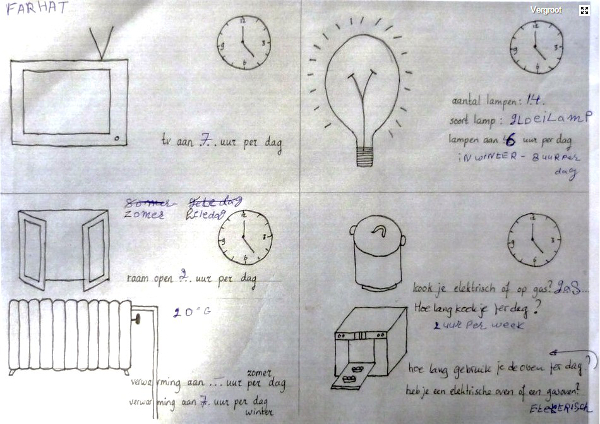 FARHAT
Vergroot
tv aan 7 uur per dag
aantal lampen: 14.
soort lamp: gloeilamp
lampen aan 6 uur per dag
in winter - 8 uur per
dag
zomer
raam open 2 uur per dag
20°C
verwarming aan ... uur per dag
zomer
verwarming aan 7 uur per dag
winter
kook je elektrisch of op gas? gas
Hoe lang kook je per dag?
2 uur per week
hoe lang gebruik je de oven per dag?
heb je een elektrische oven of een gasoven?
Elektrisch